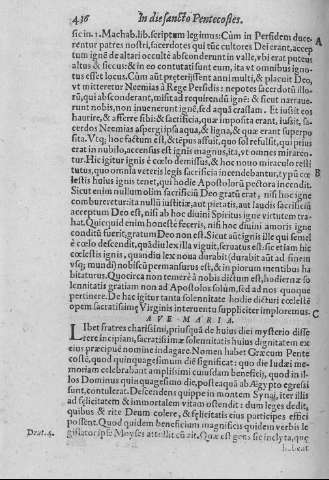 436 In die sancto Pentecostes.
sic in. 1. Machab. lib. scriptum legimus: Cùm in Persidem duce-
rentur patres nostri, sacerdotes qui tūc cultores Dei erant, accep A
tum ignē de altari occultè absconderunt in valle, vbi erat puteus
altus & siccus: & in eo contutati sunt eum, ita vt omnibus igno-
tus esset locus. Cùm aūt præterijssent anni multi, & placuit Deo,
vt mitteretur Neemias à Rege Persidis: nepotes sacerdotū illo-
rū, qui absconderant, misit ad requirendū ignē: & sicut narraue-
runt nobis, non inuenerunt ignē, sed aquā crassam. Et iussit eos
haurire, & afferre sibi: & sacrificia, quæ imposita erant, iussit, sa-
cerdos Neemias aspergi ipsa aqua, & ligna, & quæ erant superpo
sita. Vtq; hoc factum est, & tēpus affuit, quo sol refulsit, qui prius
erat in nubilo, accensus est ignis magnus, ita, vt omnes miraren-
tur. Hic igitur ignis è cœlo demissus, & hoc nouo miraculo resti
tutus, quo omnia veteris legis sacrificia incendebantur, typū cœ B
lestis huius ignis tenet, qui hodie Apostolorū pectora incendit.
Sicut enim nullum olim sacrificiū Deo gratū erat, nisi hoc igne
combureretur: ita nullū iustitiæ, aut pietatis, aut laudis sacrificiū
acceptum Deo est, nisi ab hoc diuini Spiritus igne virtutem tra-
hat. Quicquid enim honestè feceris, nisi hoc diuini amoris igne
conditū fuerit, gratum Deo non est. Sicut aūt ignis ille qui semel
è cœlo descendit, quādiu lex illa viguit, seruatus est: sic etiam hic
cœlestis ignis, quandiu lex noua durabit (durabit aūt ad finem
vsq; mundi) nobiscū permansurus est, & in piorum mentibus ha
bitaturus. Quocirca non temerè à nobis dictum est, hodiernæ so
lennitatis gratiam non ad Apostolos solùm, sed ad nos quoque
pertinere. De hac igitur tanta solennitate hodie dicturi cœlestē
opem sacratissimę Virginis interuentu suppliciter imploremus. C
AVE MARIA.
LIbet fratres charissimi, priusquā de huius diei mysterio disse
rere incipiam, sacratissimæ solennitatis huius dignitatem ex
eius præcipuè nomine indagare. Nomen habet Græcum Pente
costē, quod quinquagesimum diē significat: quo die Iudæi me-
moriam celebrabant amplissimi cuiusdam beneficij, quod in il-
los Dominus quinquagesimo die, posteaquā ab Ægypto egressi
sunt, contulerat. Descendens quippe in montem Synai, iter illis
ad felicitatem & immortalem vitam ostendit: dum leges dedit,
quibus & rite Deum colere, & felicitatis eius participes effici
possent. Quod quidem beneficium magnificis quidem verbis le
Deut. 4. gislator ipse Moyses attollit cū ait. Quæ est gens sic inclyta, quę
habeat